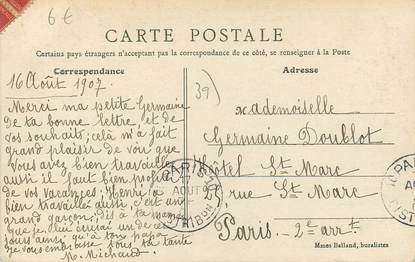 6€
CARTE POSTALE
Certains pays étrangers n'acceptant pas la correspondance de ce côté, se renseigner à la Poste
Correspondance
16 Août 1907
Merci ma petite Germaine
de ta bonne lettre, et de
vos souhaits; celà m'a fait
grand plaisir de voir que
vous avez bien travaillé
aussi il faut bien profiter
de vos vacances, Henri a
bien travaillé aussi, c'est un
grand garçon, dis à ta maman
que je l'irai un de ces
jours ainsi qu'à ton papa
je vous embrasse tous ta tante
M. Michaud
39)
Adresse
Mademoiselle
Germaine Doublot
Hôtel St Marc
25, rue St Marc
Paris - 2e arrt
PARIS
AOUT
DISTRIBON
PA
DIST
Mmes Balland, buralistes